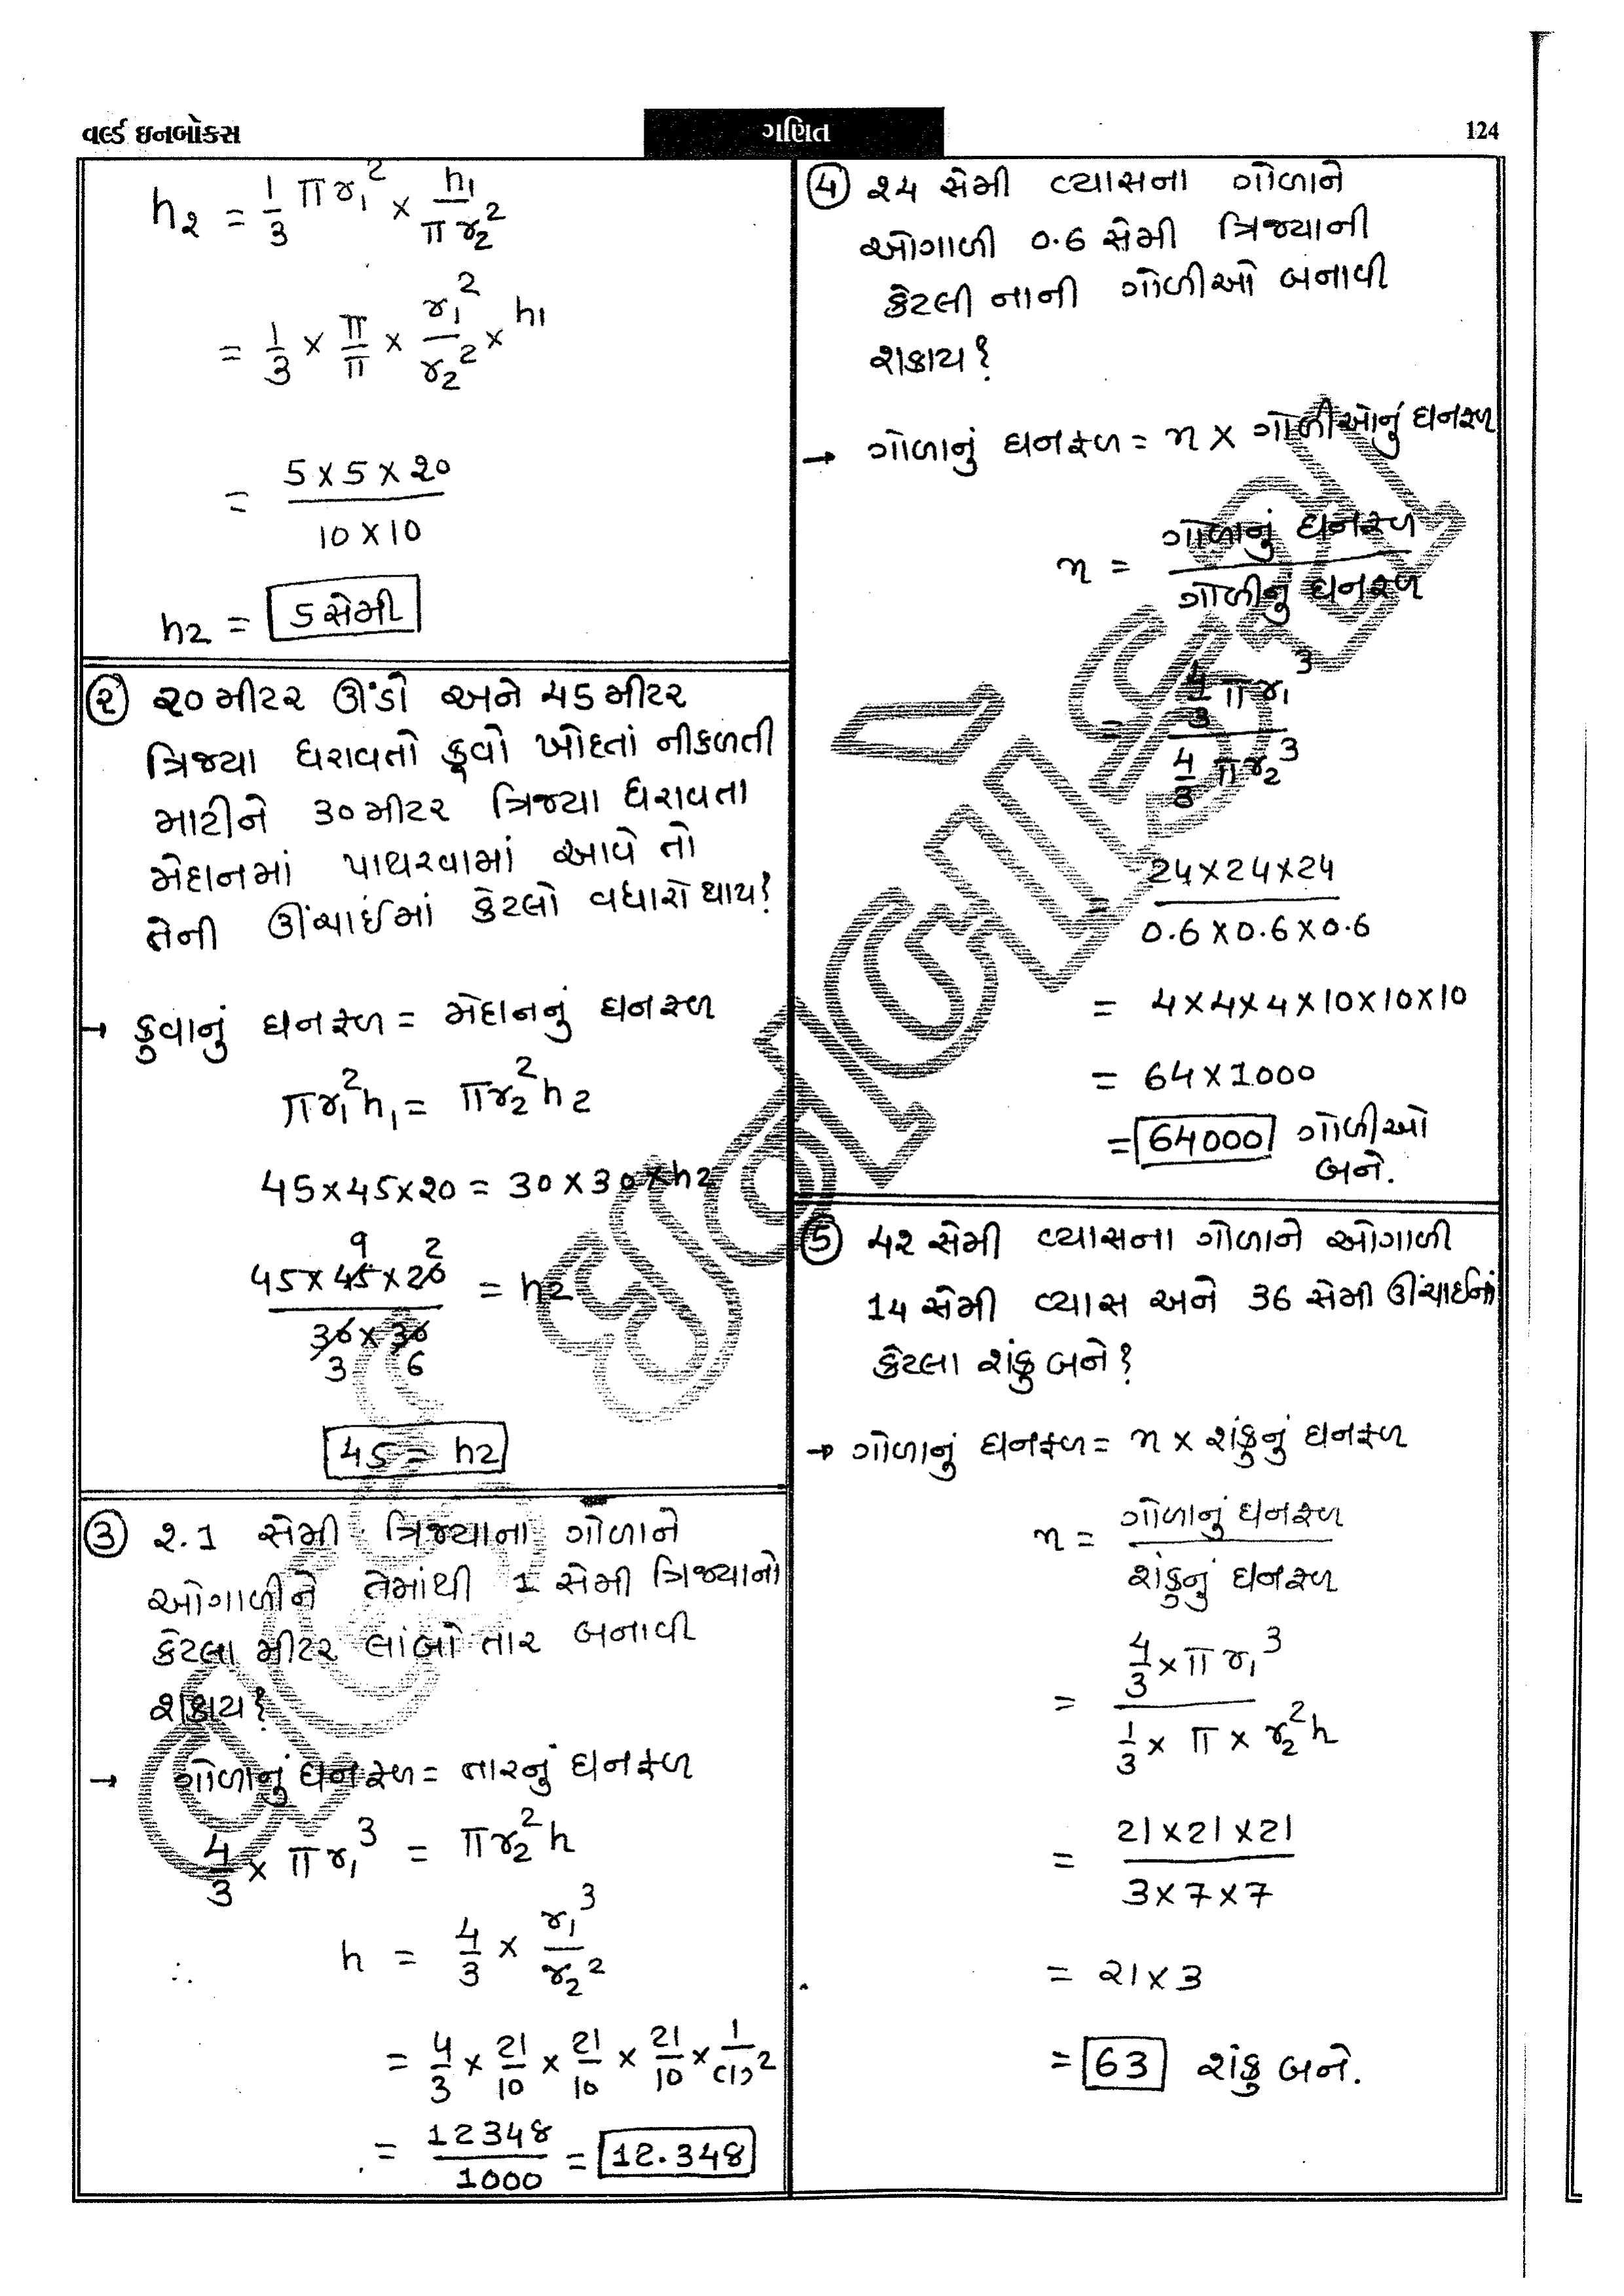 વર્લ્ડ ઇનબોક્સ
ગણિત
124
h₂ = 1/3 πr₁² × h₁/πr₂²
= 1/3 × π/π × r₁²/r₂² × h₁
= 5×5×20 / 10×10
h2 = 5 સેમી
(૨) ૨૦ મીટર ઊંડો અને 45 મીટર
ત્રિજ્યા ધરાવતો કૂવો ખોદતાં નીકળતી
માટીને 30 મીટર ત્રિજ્યા ધરાવતા
મેદાનમાં પાથરવામાં આવે તો
તેની ઊંચાઈમાં કેટલો વધારો થાય?
→ કુવાનું ઘનફળ = મેદાનનું ઘનફળ
πr₁²h₁ = πr₂²h2
45×45×20 = 30×30×h2
9 2
45×45×20 / 30×30 = h2
3 6
45 = h2
(3) ૨.1 સેમી ત્રિજ્યાના ગોળાને
ઓગાળીને તેમાંથી 1 સેમી ત્રિજ્યાનો
કેટલા મીટર લાંબો તાર બનાવી
શકાય?
→ ગોળાનું ઘનફળ = તારનું ઘનફળ
4/3 × πr₁³ = πr₂²h
∴ h = 4/3 × r₁³/r₂²
= 4/3 × 21/10 × 21/10 × 21/10 × 1/(1)²
= 12348/1000 = 12.348
(4) ૨4 સેમી વ્યાસના ગોળાને
ઓગાળી 0.6 સેમી ત્રિજ્યાની
કેટલી નાની ગોળીઓ બનાવી
શકાય?
→ ગોળાનું ઘનફળ = n × ગોળીઓનું ઘનફળ
n = ગોળાનું ઘનફળ / ગોળીનું ઘનફળ
= 4/3 πr₁³ / 4/3 πr₂³
= 24×24×24 / 0.6×0.6×0.6
= 4×4×4×10×10×10
= 64×1000
= 64000 ગોળીઓ
બને.
(5) 4૨ સેમી વ્યાસના ગોળાને ઓગાળી
14 સેમી વ્યાસ અને 36 સેમી ઊંચાઈનાં
કેટલા શંકુ બને?
→ ગોળાનું ઘનફળ = n × શંકુનું ઘનફળ
n = ગોળાનું ઘનફળ / શંકુનું ઘનફળ
= 4/3 × πr₁³ / 1/3 × π × r₂²h
= 21×21×21 / 3×7×7
= 21×3
= 63 શંકુ બને.